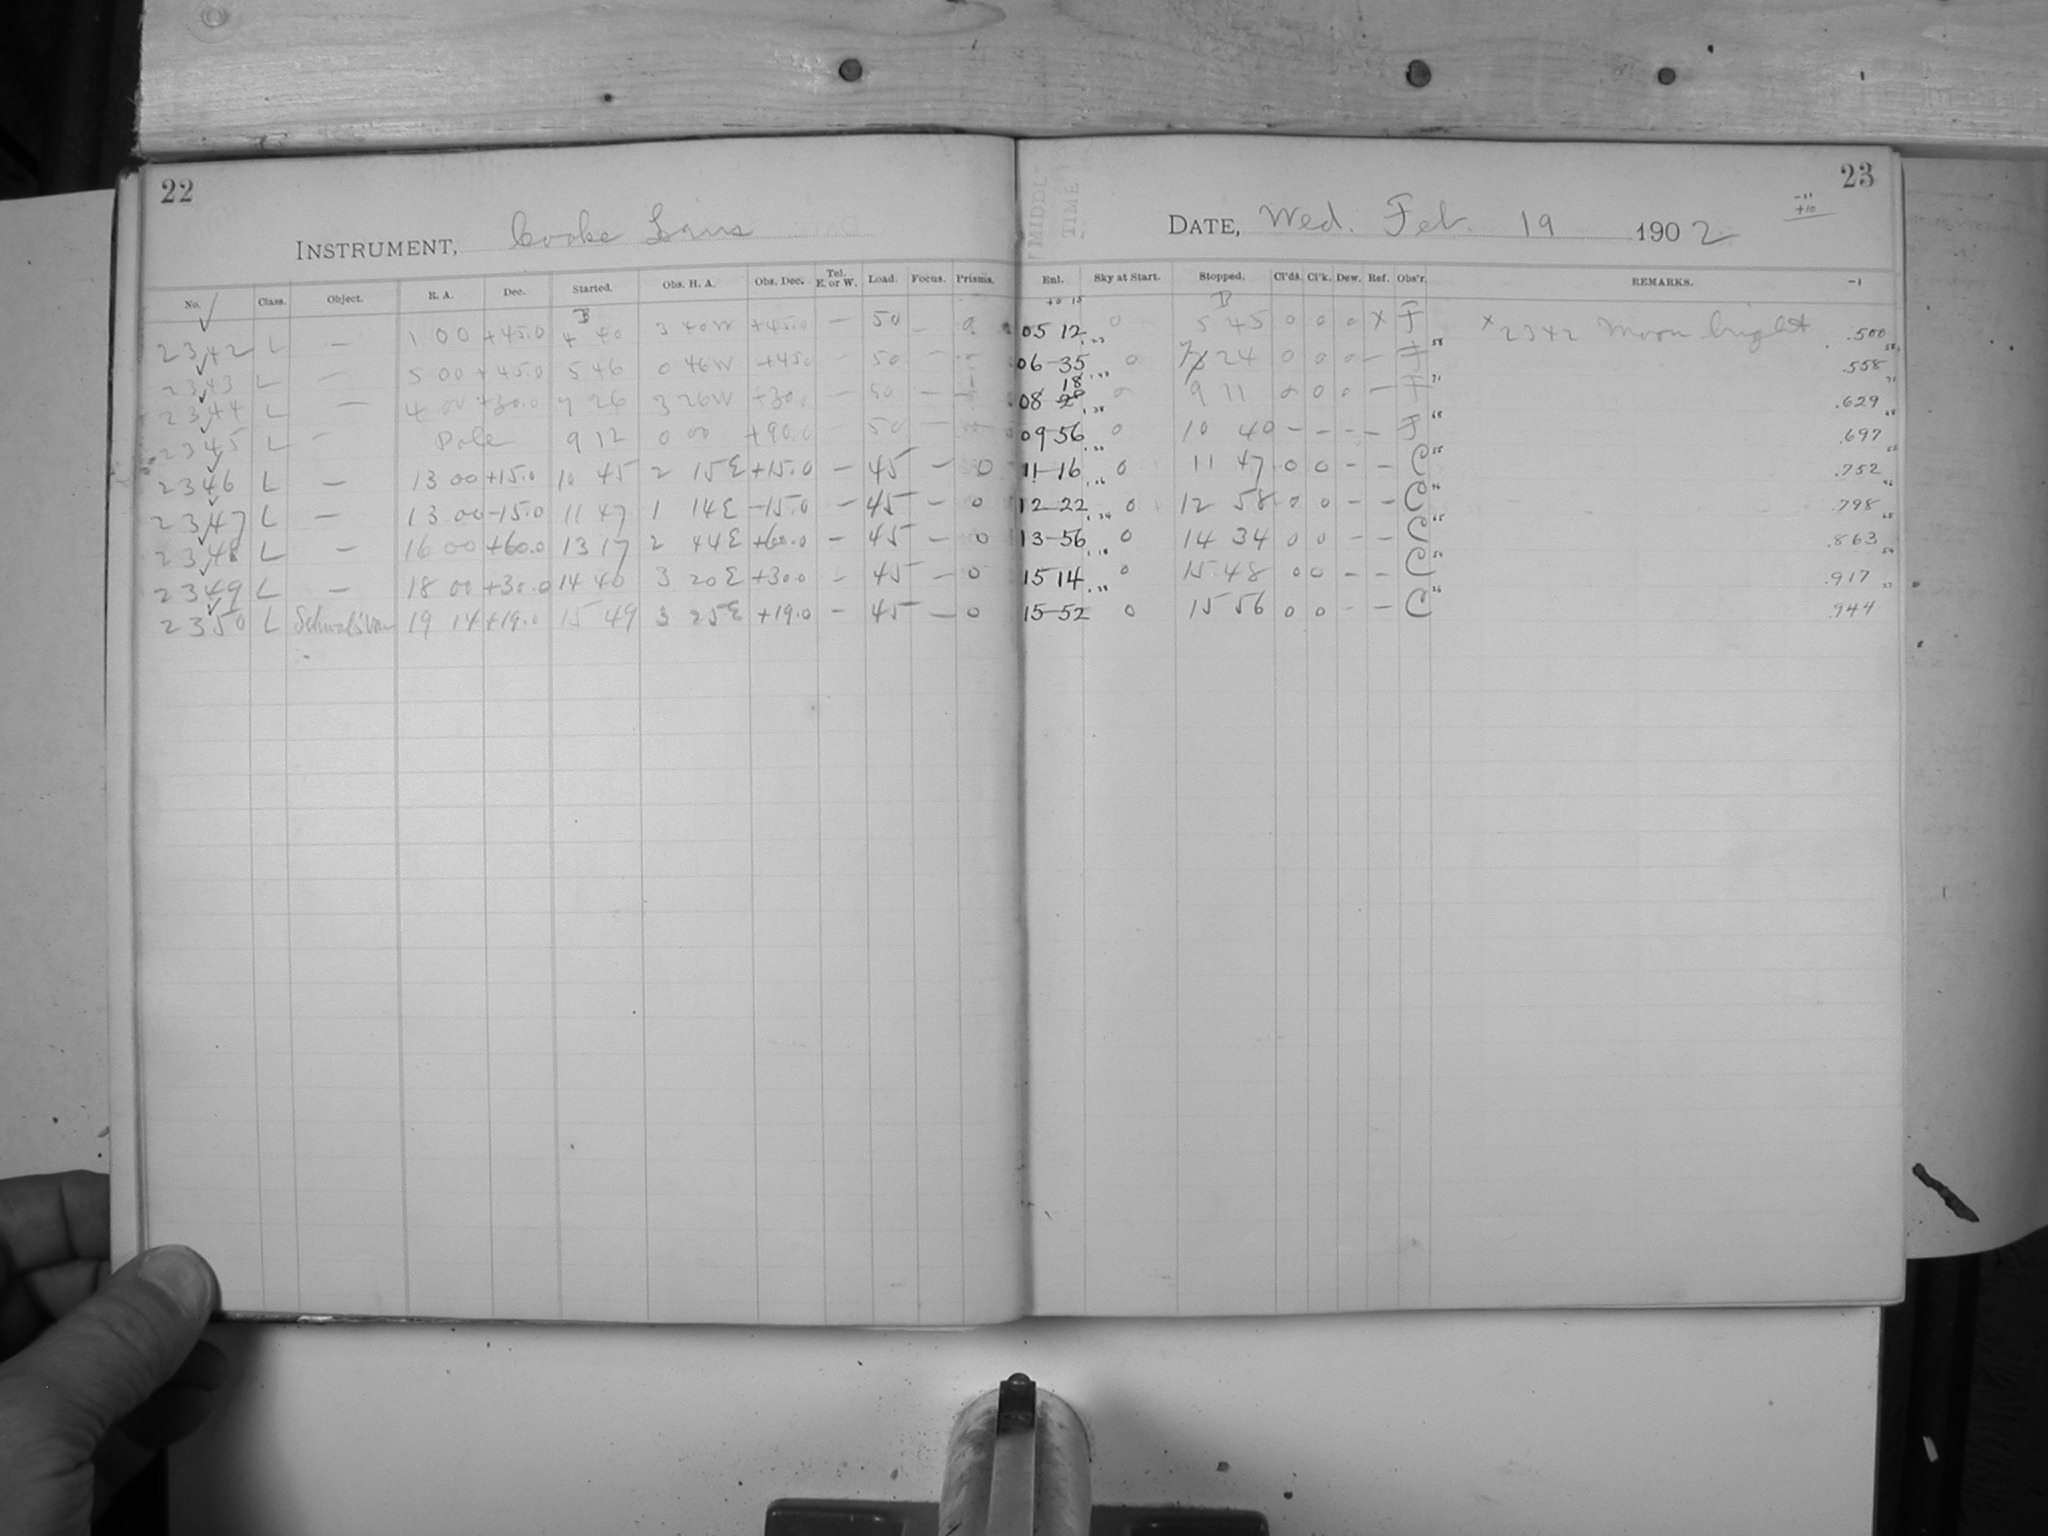 22
INSTRUMENT, Cooke Lens
No. Class. Object. R. A. Dec. Started. Obs. H. A. Obs. Dec. Tel. E. or W. Load. Focus. Prisms.
2342 L — 1 00 +45.0 4 40 3 40W +45.0 — 50 — 0
2343 L — 5 00 +45.0 5 46 0 46W +45.0 — 50 —
2344 L — 4 00 +30.0 7 26 3 26W +30.0 — 50 — —
2345 L — Pole 9 12 0 00 +90.0 — 50 —
2346 L — 13 00 +15.0 10 45 2 15E +15.0 — 45 — 0
2347 L — 13 00 -15.0 11 47 1 14E -15.0 — 45 — 0
2348 L — 16 00 +60.0 13 17 2 44E +60.0 — 45 — 0
2349 L — 18 00 +30.0 14 40 3 20E +30.0 — 45 — 0
2350 L 19 14 +19.0 15 49 3 25E +19.0 — 45 — 0
23
MIDDL-
TIME
DATE, Wed. Feb. 19 1902
+10
Enl. Sky at Start. Stopped. Cl'ds. Cl'k. Dew. Ref. Obs'r. REMARKS. -1
05 12 0 5 45 0 0 0 X F x 2342 Moon bright .500
06-35 0 7 24 0 0 0 — F 58 .558
08 18 0 9 11 0 0 0 — F 71 .629
09-56 0 10 40 — — — — F 68 .697
11-16 0 11 47 0 0 — — C 55 .752
12-22 0 12 58 0 0 — — C 46 .798
13-56 0 14 34 0 0 — — C 65 .863
15 14 0 15 48 0 0 — — C 54 .917
15-52 0 15 56 0 0 — — C .944